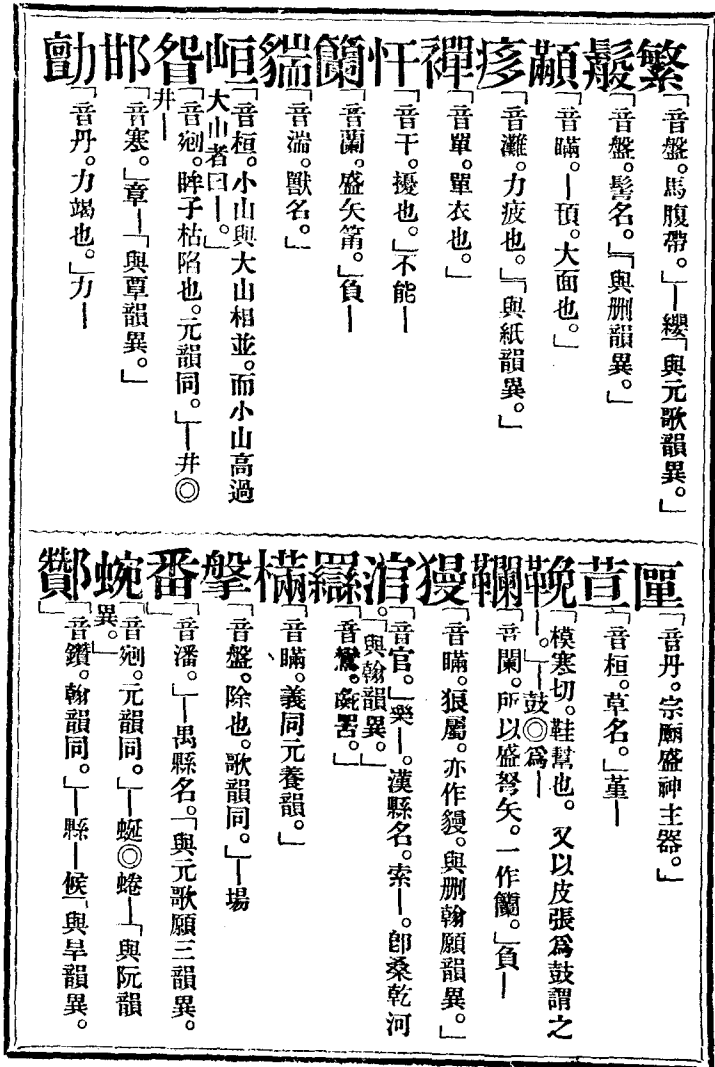 繁「音盤。馬腹帶。」—纓「與元歌韻異。」
鬆「音盤。髻名。」「與删韻異。」
顢「音瞞。—頇。大面也。」
痑「音灘。力疲也。」「與紙韻異。」
襌「音單。單衣也。」
忓「音干。擾也。」不能—
籣「音蘭。盛矢筩。」負—
貒「音湍。獸名。」
峘「音桓。小山與大山相並。而小山高過
大山者曰—。」
眢「音剜。眸子枯陷也。元韻同。」—井◎
井—
邯「音寒。」章—「與覃韻異。」
勯「音丹。力竭也。」力—
匰「音丹。宗廟盛神主器。」
荁「音桓。草名。」堇—
鞔「模寒切。鞋幫也。又以皮張爲鼓謂之
—。」—鼓◎爲—
韊「音闌。所以盛弩矢。一作籣。」負—
獌「音瞞。狼屬。亦作貗。與删翰願韻異。」
涫「音官。」樂—。漢縣名。索—。卽桑乾河
。「與翰韻異。」
羉「音鸞。彘罟。」
樠「音瞞。義同元養韻。」
搫「音盤。除也。歌韻同。」—場
番「音潘。」—禺縣名。「與元歌願三韻異。
」
蜿「音剜。元韻同。」—蜒◎蜷—「與阮韻
異。」
酇「音鑽。翰韻同。」—縣—候「與旱韻異。
」